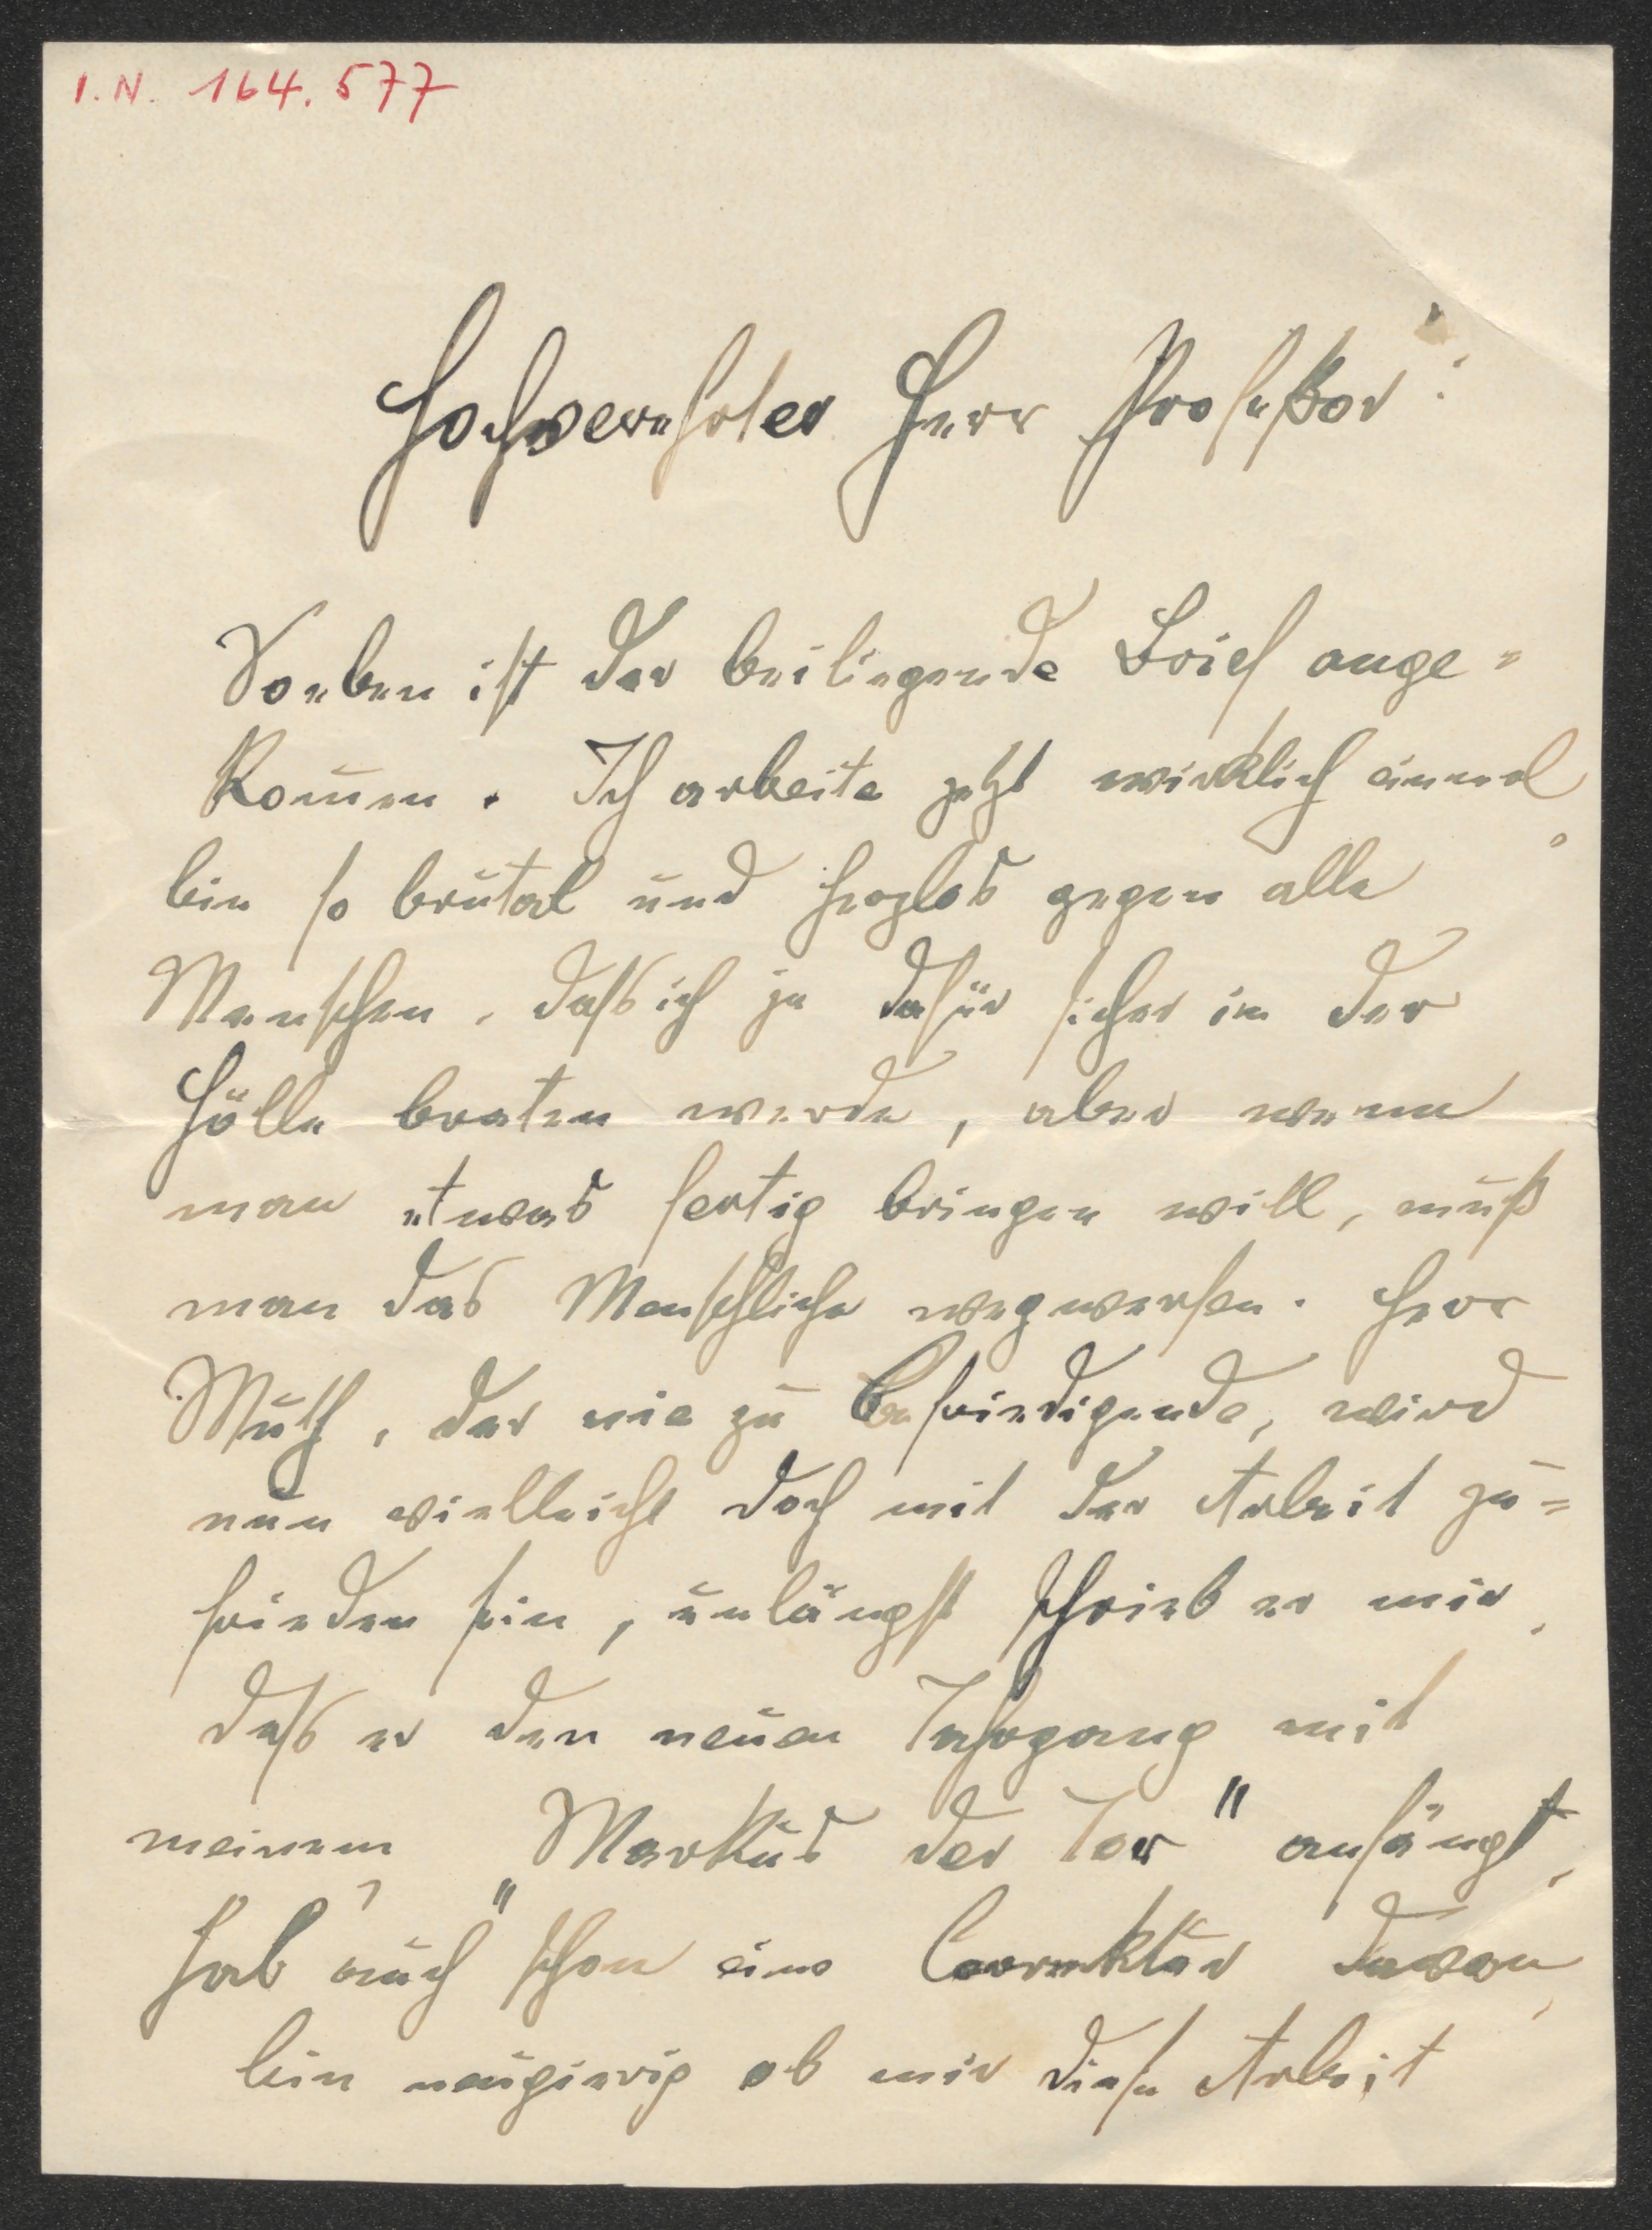 I.N. 164.577
Hochverehrter Herr Profeßor!
Soeben ist der beiliegende Brief ange-
kom̅en. Ich arbeite jetzt wirklich einmal,
bin so brutal und herzlos gegen alle
Menschen, dass ich ja dafür sicher in der
Hölle braten werde, aber wenn
man etwas fertig bringen will, muß
man das Menschliche wegwerfen. Herr
Muth, der nie zu Befriedigende, wird
nun vielleicht doch mit der Arbeit zu=
frieden sein, unlängst schrieb er mir,
dass er den neuen Jahrgang mit
meinem „Markus der Tor" anfängt,
hab auch schon eine Correktur davon,
bin neugierig ob mir diese Arbeit